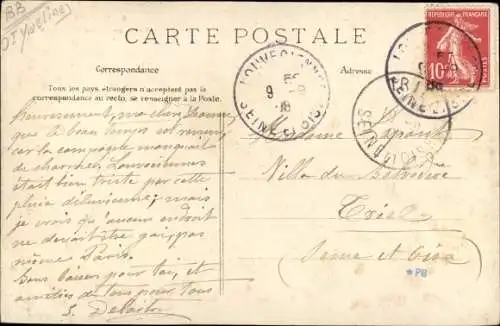 BB
CARTE POSTALE
Correspondance
Adresse
Tous les pays étrangers n'acceptent pas la
correspondance au recto, se renseigner à la Poste.
RÉPUBLIQUE FRANÇAISE
10
POSTES
LOUVECIENNES
9
SEINE-ET-OISE
Heureusement, ma
que le beau temps est revenu
car la campagne manquait
de charmes. Louveciennes
était bien triste par cette
pluie diluvienne; mais
je crois qu'aucun endroit
ne devait être gai, pas
même Paris.
Bons baisers pour toi, et
amitiés de tous pour tous
S.
Madame
Villa du Belvédère
Triel
Seine et Oise
*PB